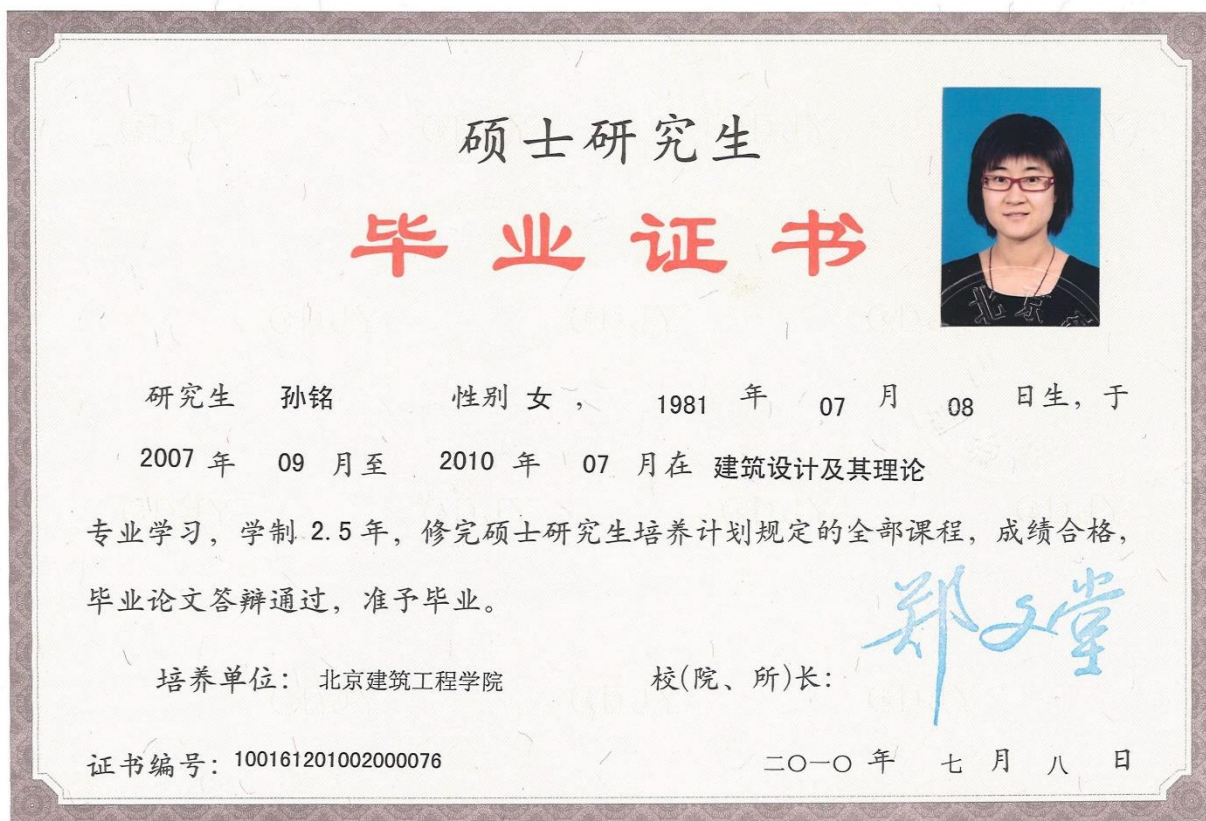 硕士研究生
毕业证书
研究生 孙铭 性别 女 , 1981 年 07 月 08 日生, 于
2007 年 09 月至 2010 年 07 月在 建筑设计及其理论
专业学习, 学制 2.5 年, 修完硕士研究生培养计划规定的全部课程, 成绩合格,
毕业论文答辩通过, 准予毕业。
培养单位: 北京建筑工程学院 校(院、所)长: 郑文堂
证书编号: 100161201002000076 二〇一〇 年 七 月 八 日
北京